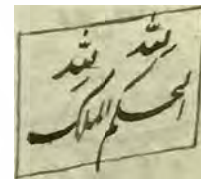 لله لله
الحكم الملك